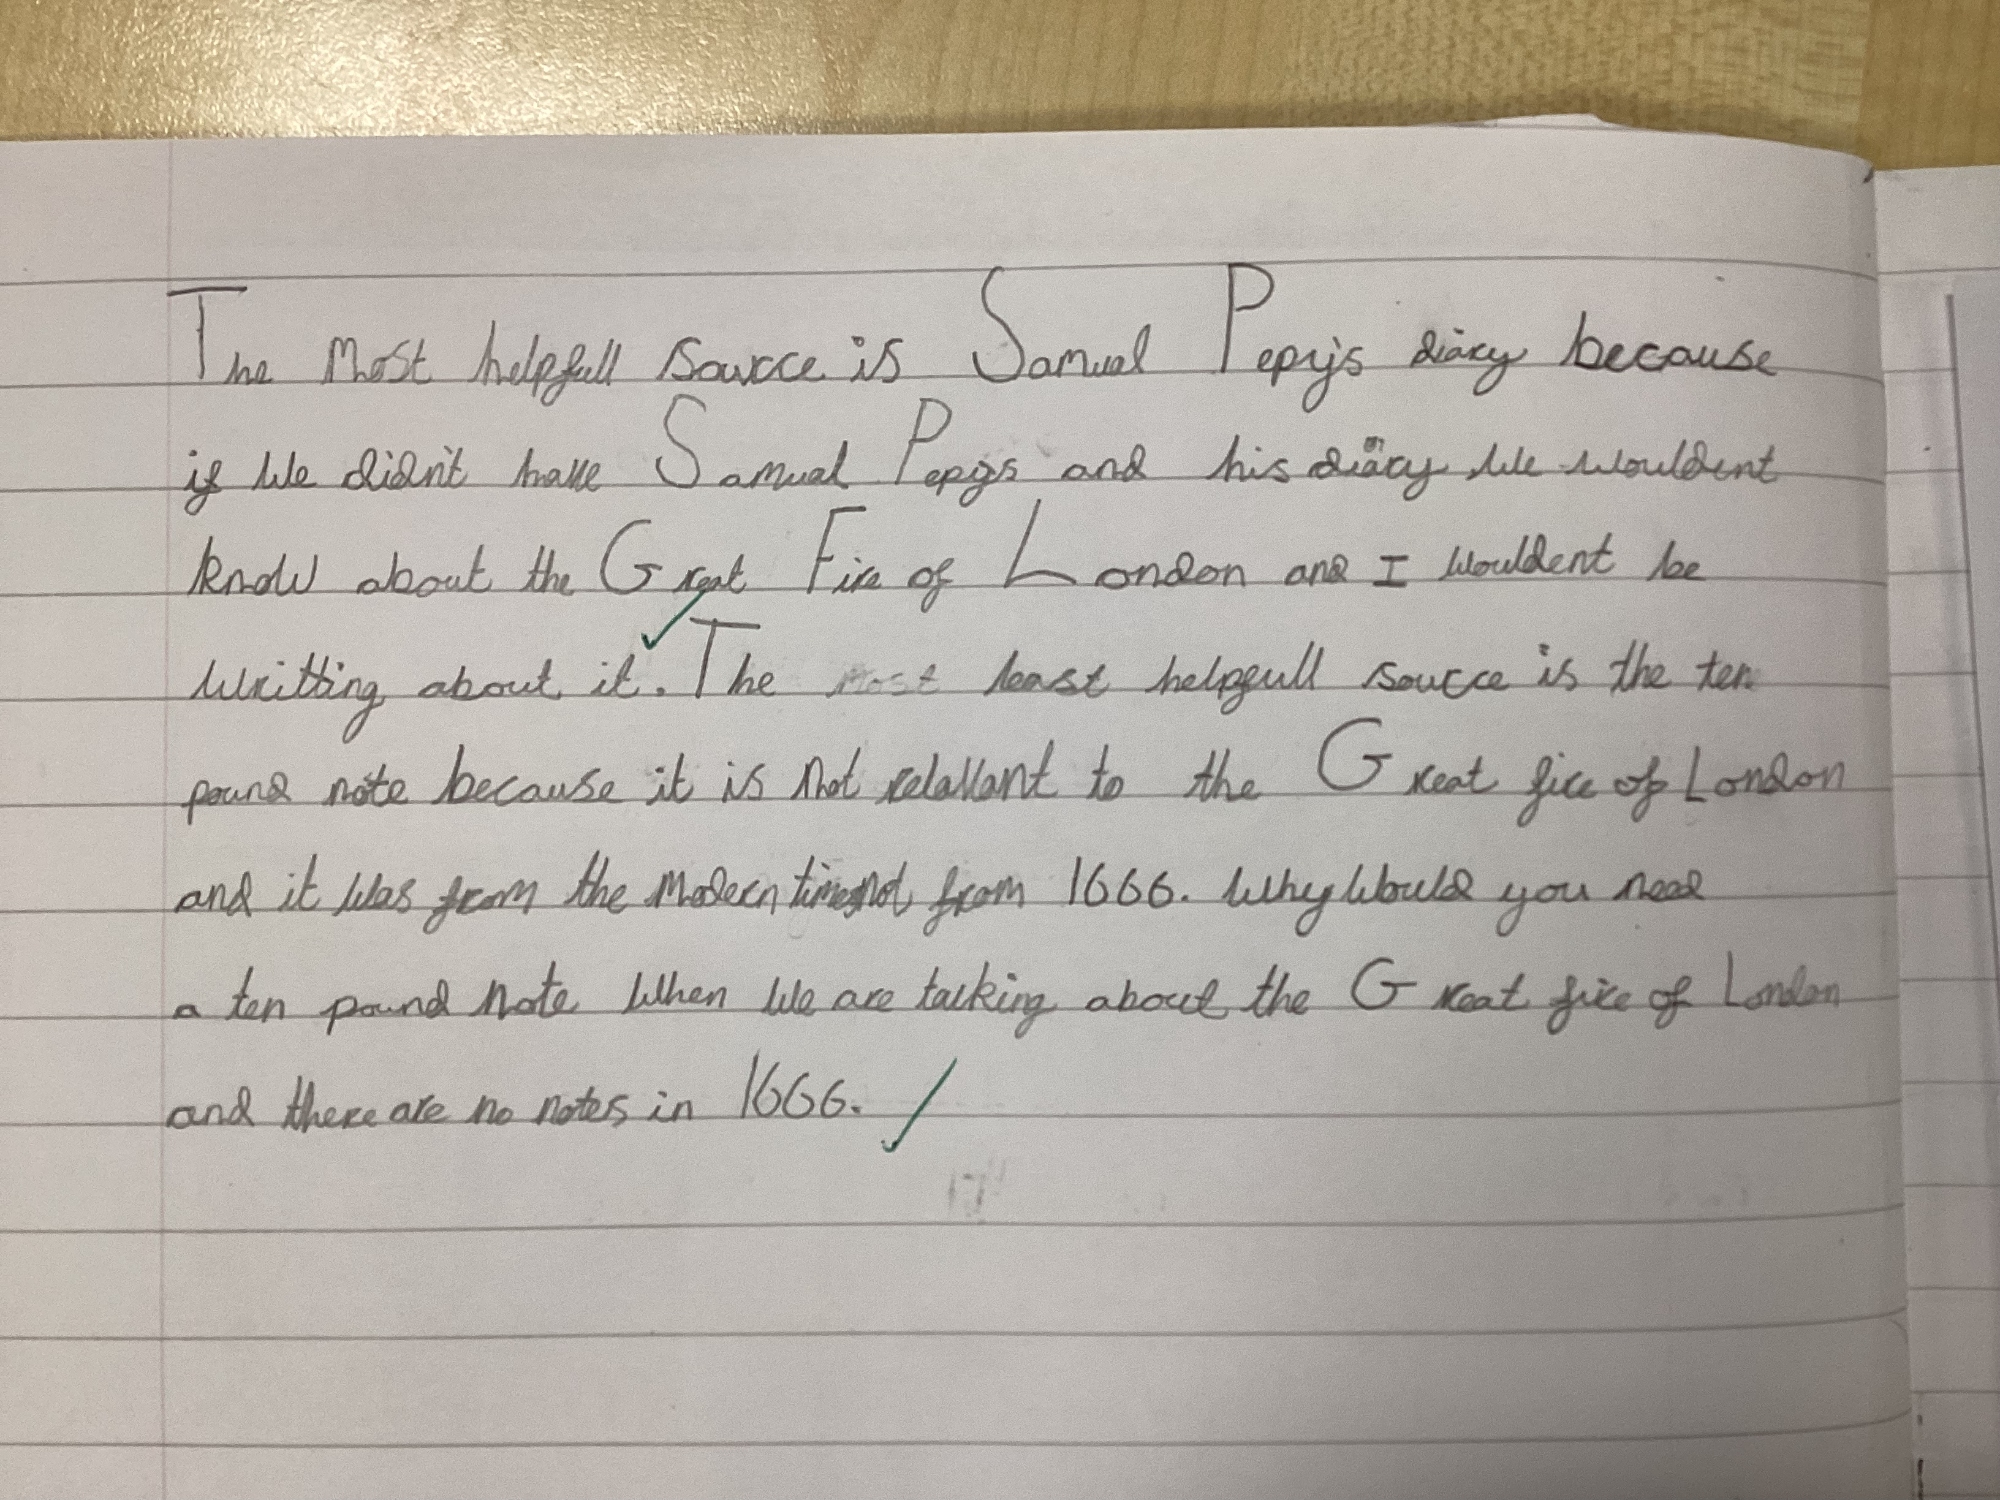 The Most helpfull source is Samual Pepys diary because
if we didn't have Samual Pepys and his diary we wouldent
know about the Great Fire of London and I wouldent be
writting about it. The most least helpfull source is the ten
pound note because it is not relavant to the Great fire of London
and it was from the modern times not from 1666. Why would you need
a ten pound note when we are talking about the Great fire of London
and there are no notes in 1666.